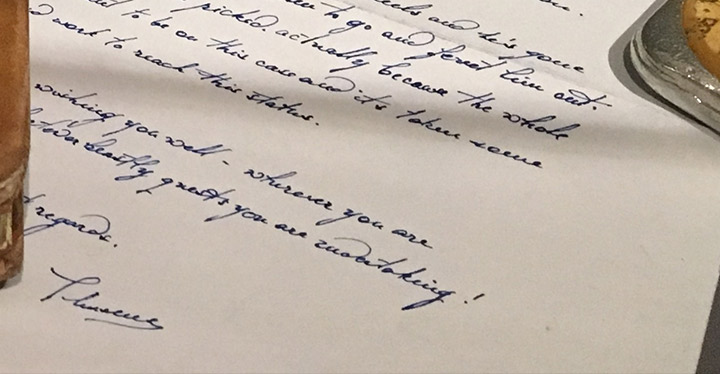 and his gone
to go and ferret him out.
picked. actually because the whole
to be on this case and it's taken some
work to reach this status.
wishing you well - wherever you are
beastly quests you are undertaking!
regards.